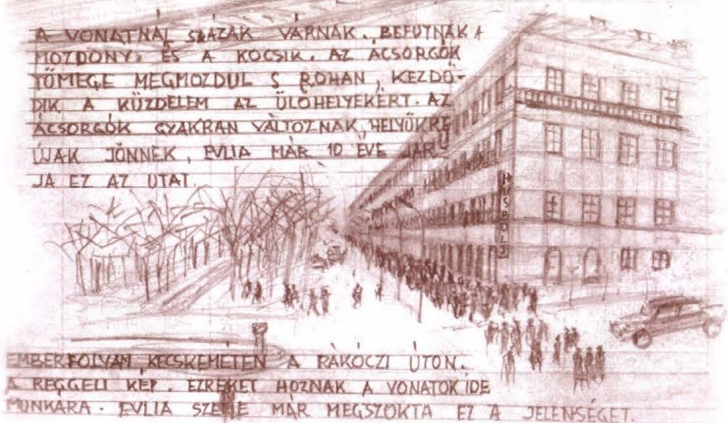 A VONATNÁL SZÁZAK VÁRNAK. BEFUTNAK A
MOZDONY, ÉS A KOCSIK. AZ ÁCSORGÓK
TÖMEGE MEGMOZDUL S ROHAN, KEZDŐ-
DIK A KÜZDELEM AZ ÜLŐHELYEKÉRT. AZ
ÁCSORGÓK GYAKRAN VÁLTOZNAK, HELYÜKRE
ÚJAK JÖNNEK, EVLIA MÁR 10 ÉVE JÁR-
JA EZ AZ UTAT.
HÚSBOLT
EMBERFOLYAM KECSKEMÉTEN A RÁKÓCZI ÚTON.
A REGGELI KÉP. EZREKET HOZNAK A VONATOK IDE
MUNKÁRA. EVLIA SZEME MÁR MEGSZOKTA EZ A JELENSÉGET.